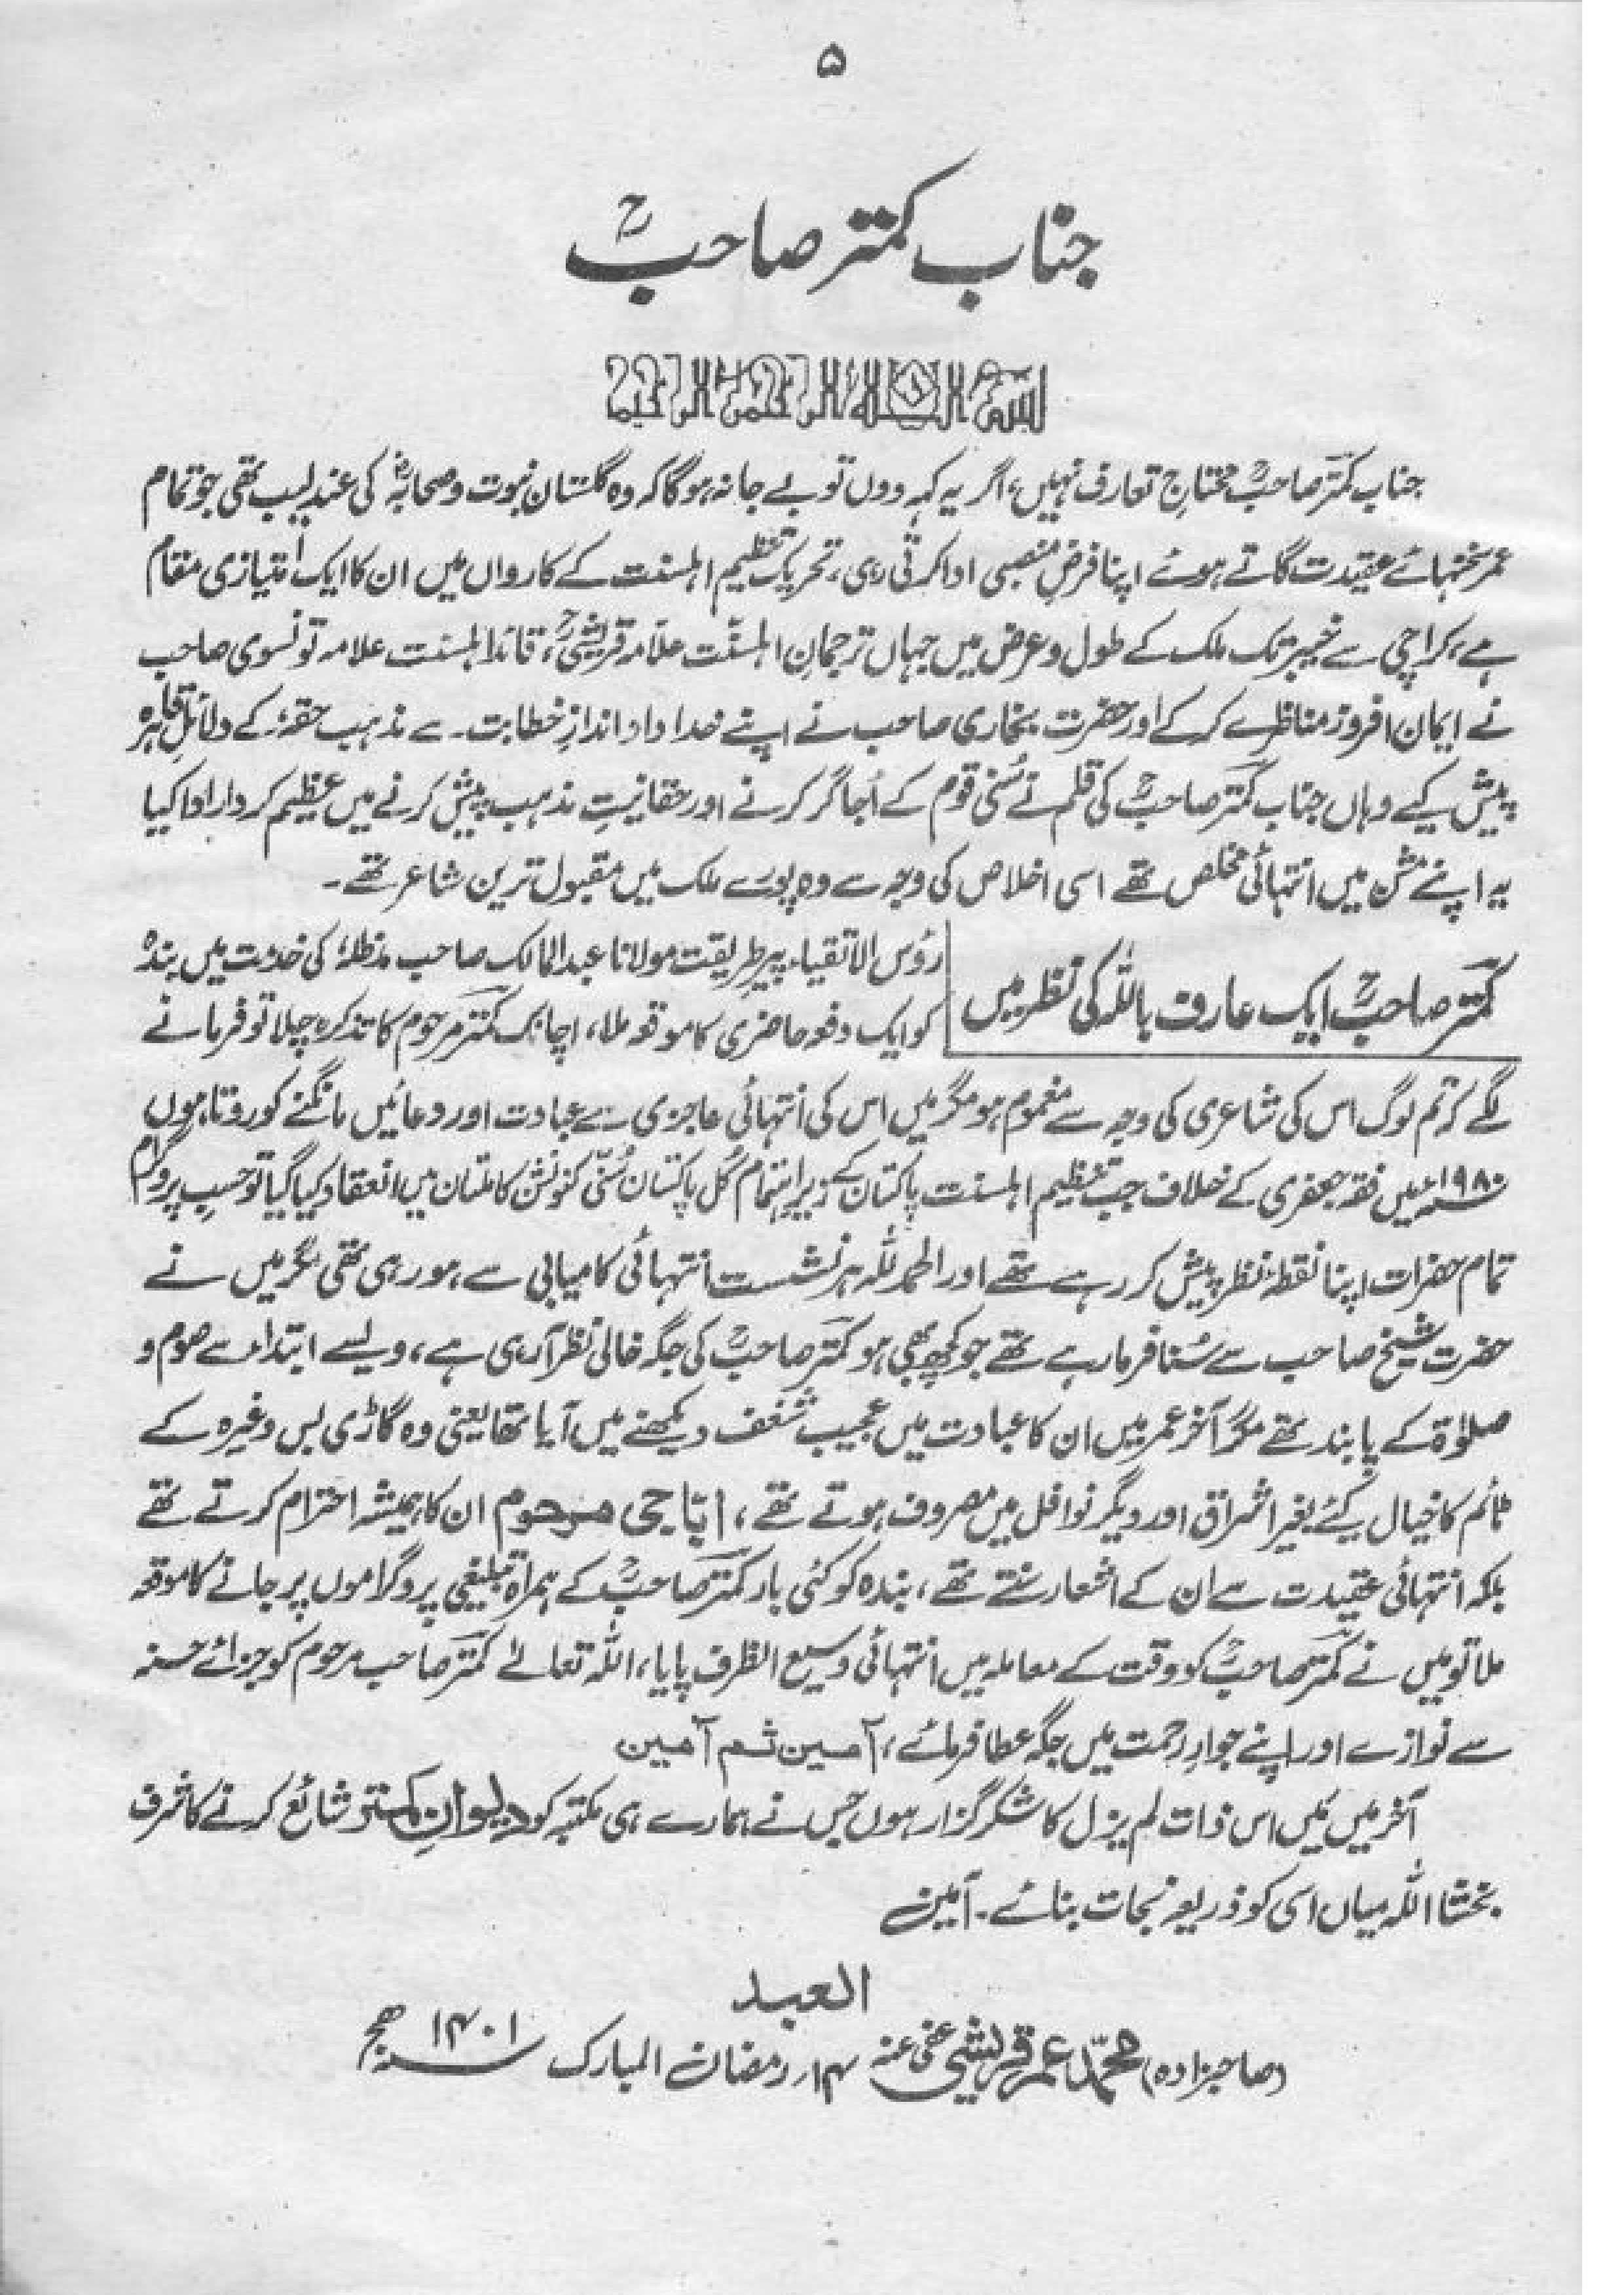 ۵
جناب کمتر صاحبؒ
بسم اللہ الرحمن الرحیم
جناب کمتر صاحبؒ محتاجِ تعارف نہیں، اگر یہ کہہ دوں تو بے جا نہ ہوگا کہ وہ گلستان نبوت و صحابہؓ کی عندلیب تھی جو تمام
عمر نغمہائے عقیدت گاتے ہوئے اپنا فرض منصبی ادا کرتی رہی، تحریک تنظیم اہلسنت کے کارواں میں ان کا ایک امتیازی مقام
ہے، کراچی سے خیبر تک ملک کے طول و عرض میں جہاں ترجمانِ اہلسنّت علاّمہ قریشیؒ، قائد اہلسنت علامہ تونسوی صاحب
نے ایمان افروز مناظرے کر کے اور حضرت بخاری صاحب نے اپنے خداداد اندازِ خطابت سے مذہب حقہ کے دلائلِ قاہرہ
پیش کیے وہاں جناب کمتر صاحبؒ کی قلم نے سُنی قوم کے اُجاگر کرنے اور حقانیتِ مذہب پیش کرنے میں عظیم کردار ادا کیا
یہ اپنے مشن میں انتہائی مخلص تھے اسی اخلاص کی وجہ سے وہ پورے ملک میں مقبول ترین شاعر تھے۔
کمتر صاحبؒ ایک عارف باللہ کی نظر میں
رؤس الاتقیاء پیرِ طریقت مولانا عبدالمالک صاحب مدظلہٗ کی خدمت میں بندہ
کو ایک دفعہ حاضری کا موقعہ ملا، اچانک کمتر مرحوم کا تذکرہ چلا تو فرمانے
لگے کہ تم لوگ اس کی شاعری کی وجہ سے مغموم ہو مگر میں اس کی انتہائی عاجزی سے عبادت اور دعائیں مانگنے کو روتا ہوں
۱۹۸۰ء میں فقہ جعفری کے خلاف جب تنظیم اہلسنت پاکستان کے زیرِ اہتمام کُل پاکستان سُنّی کنونشن کا ملتان میں انعقاد کیا گیا تو حسبِ پروگرام
تمام حضرات اپنا نقطۂ نظر پیش کر رہے تھے اور الحمدللہ ہر نشست انتہائی کامیابی سے ہو رہی تھی مگر میں نے
حضرت شیخ صاحب سے سُنا فرما رہے تھے جو کچھ بھی ہو کمتر صاحبؒ کی جگہ خالی نظر آ رہی ہے، ویسے ابتداء سے صوم و
صلوٰۃ کے پابند تھے مگر آخر عمر میں ان کا عبادت میں عجیب شغف دیکھنے میں آیا تھا یعنی وہ گاڑی بس وغیرہ کے
ٹائم کا خیال کیئے بغیر اشراق اور دیگر نوافل میں مصروف ہوتے تھے، ابّا جی مرحوم ان کا ہمیشہ احترام کرتے تھے
بلکہ انتہائی عقیدت سے ان کے اشعار سنتے تھے، بندہ کو کئی بار کمتر صاحبؒ کے ہمراہ تبلیغی پروگراموں پر جانے کا موقعہ
ملا تو میں نے کمتر صاحبؒ کو وقت کے معاملہ میں انتہائی وسیع الظرف پایا، اللہ تعالےٰ کمتر صاحب مرحوم کو جزائے حسنہ
سے نوازے اور اپنے جوارِ رحمت میں جگہ عطا فرمائے، آمین ثم آمین
آخر میں مَیں اس ذات لم یزل کا شکر گزار ہوں جس نے ہمارے ہی مکتبہ کو دیوانِ کمتر شائع کرنے کا شرف
بخشا اللہ میاں اسی کو ذریعہ نجات بنائے۔ آمین
العبد
(صاحبزادہ) محمّد عمر قریشی عفی عنہ ۱۴ رمضان المبارک ۱۴۰۱ھ